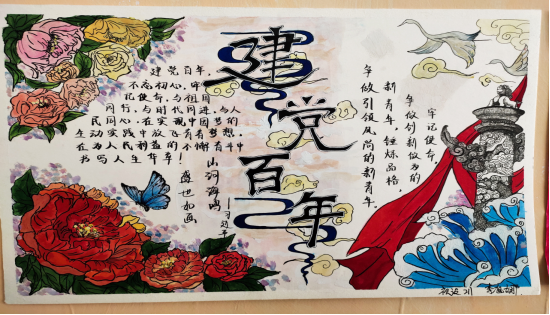 建党百年
建党百年,
不忘初心,牢
记使命,与祖国
同行,与时代同进,与人
民同心,在实现中国梦的
生动实践中放飞青春梦想,
在为人民利益的不懈奋斗中
书写人生华章!
山河海
盛世如画
牢记使命,
争做创新做为的
新青年,锤炼品格,
争做引领风尚的新青年。